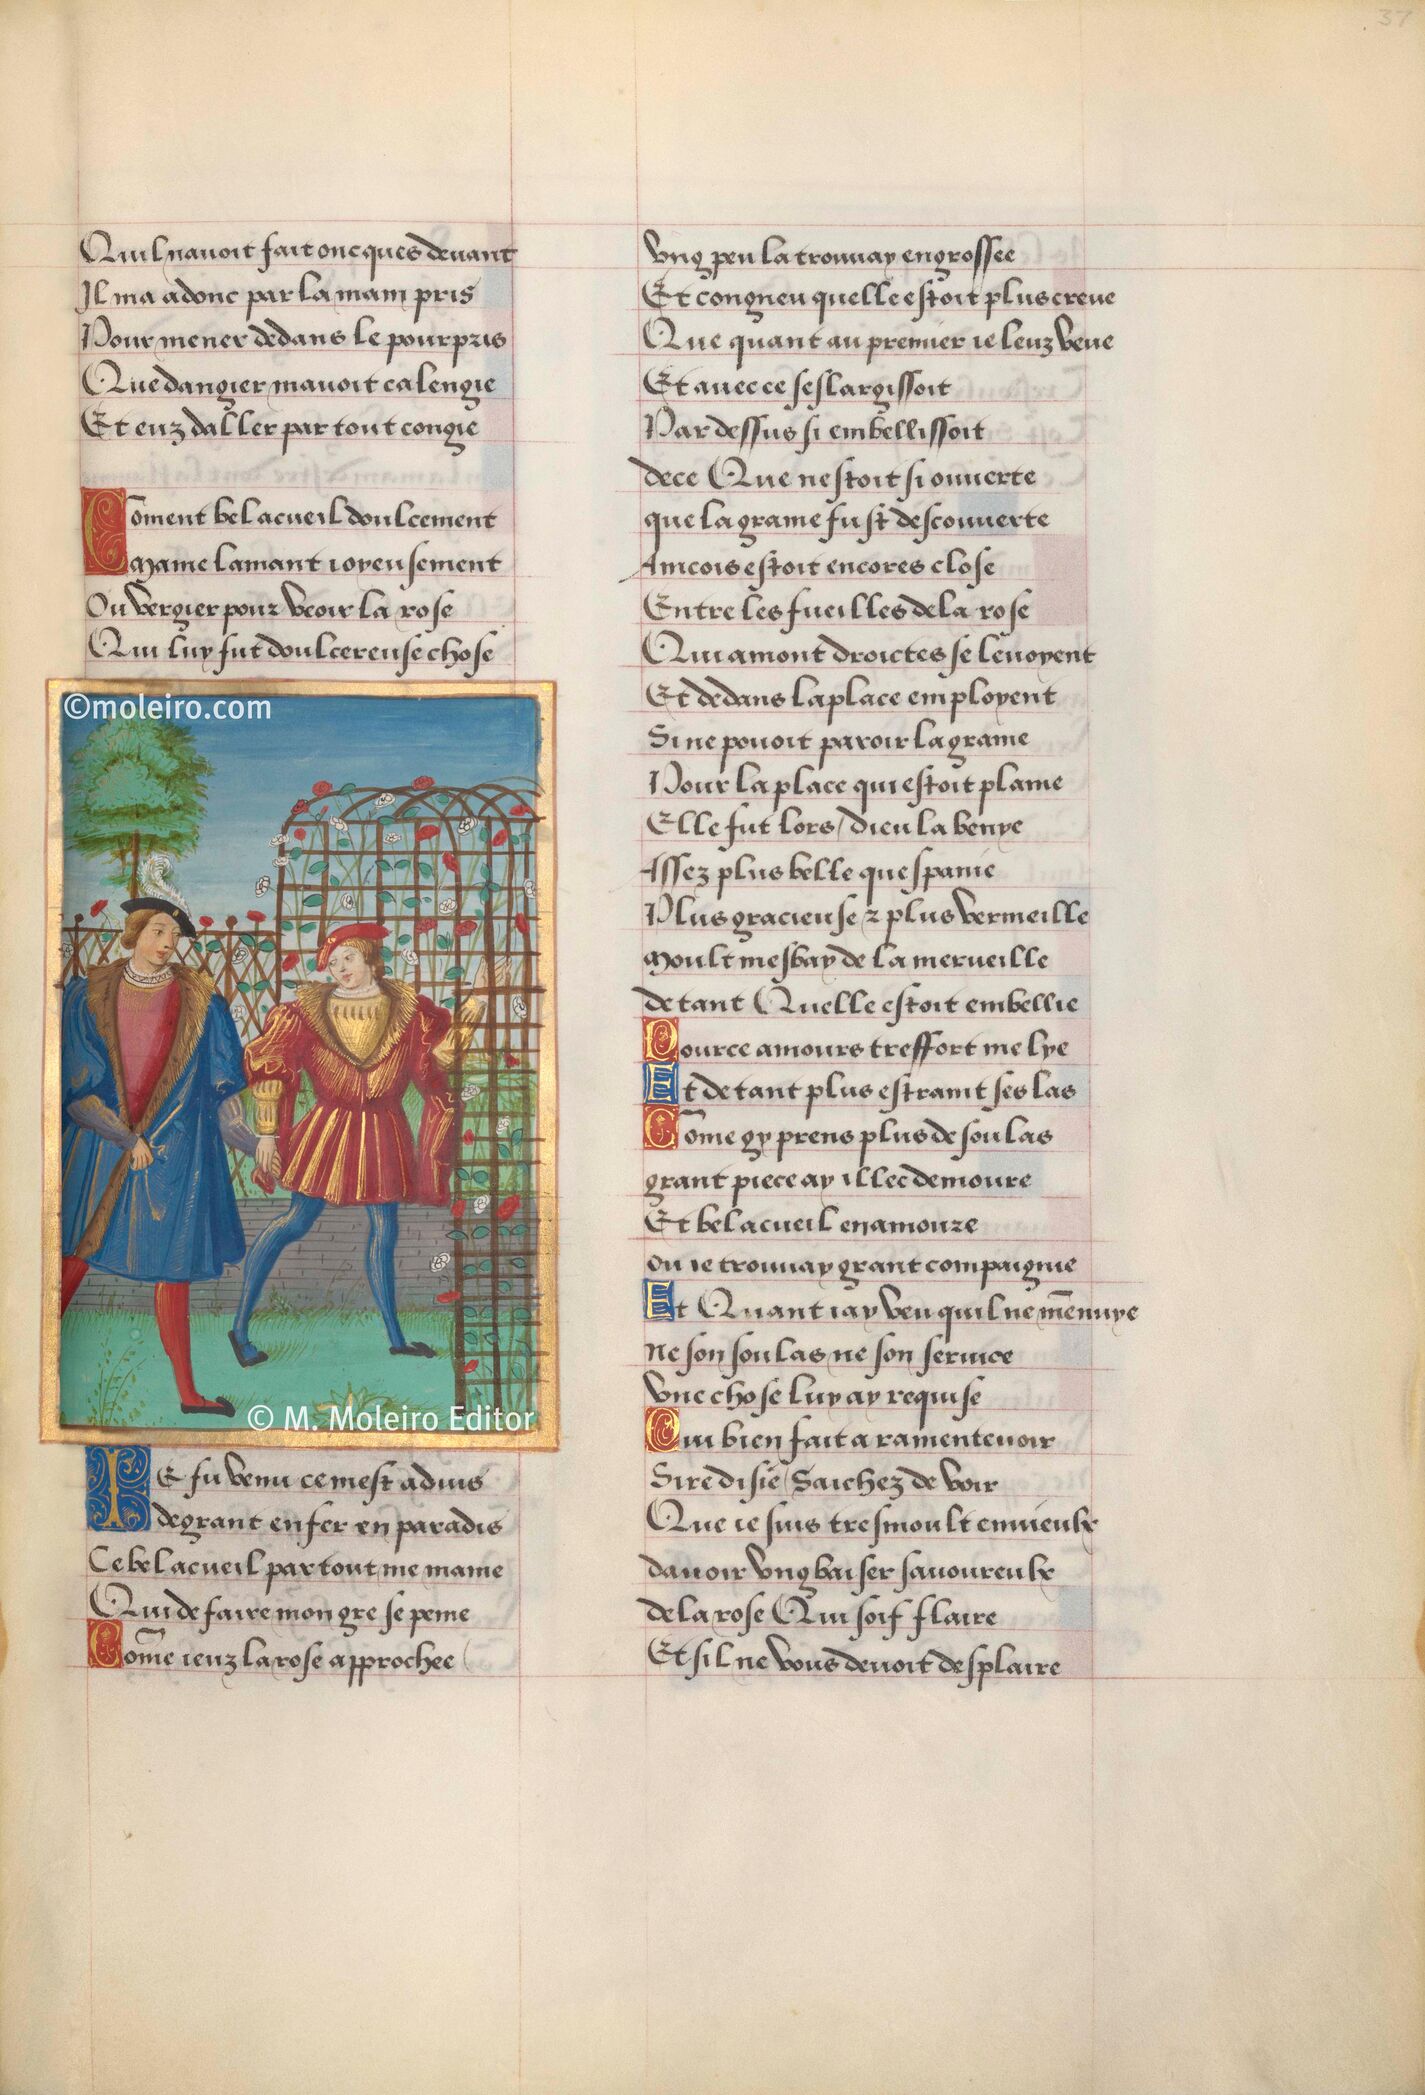 37
Quil nauoit fait oncques deuant
Il ma adonc par la main pris
Pour mener dedans le pourpris
Que dangier mauoit calengie
Et euz daller par tout congie
Cõment bel acueil doulcement
Maine lamant ioyeusement
Ou vergier pour veoir la rose
Qui luy fut doulcereuse chose
©moleiro.com
© M. Moleiro Editor
IE fu venu ce mest aduis
de grant enfer en paradis
Ce bel acueil par tout me maine
Qui de faire mon gre se peine
Cõme ieuz la rose approchee
vng peu la trouuay engrossee
Et congneu quelle estoit plus creue
Que quant au premier ie leuz veue
Et auec ce seslargissoit
Par dessus si embellissoit
dece Que nestoit si ouuerte
que la graine fust descouuerte
Aincois estoit encores close
Entre les fueilles de la rose
Qui amont droictes se leuoyent
Et dedans la place employent
Si ne pouoit paroir la graine
Pour la place qui estoit plaine
Elle fut lors / dieu la benye
Assez plus belle quespanie
Plus gracieuse z plus vermeille
Moult mesbay de la merueille
de tant Quelle estoit embellie
Pource amours treffort me lye
Et de tant plus estraint ses las
Cõme gy prens plus de soulas
grant piece ay illec demoure
Et bel acueil enamoure
Ou ie trouuay grant compaignie
Et Quant iay veu quil ne mẽnuye
Ne son soulas ne son seruice
vne chose luy ay requise
Qui bien fait a ramenteuoir
Sire disie / Saichez de voir
Que ie suis tresmoult enuieulx
dauoir vng baiser sauoureulx
de la rose Qui soif flaire
Et sil ne vous deuoit desplaire